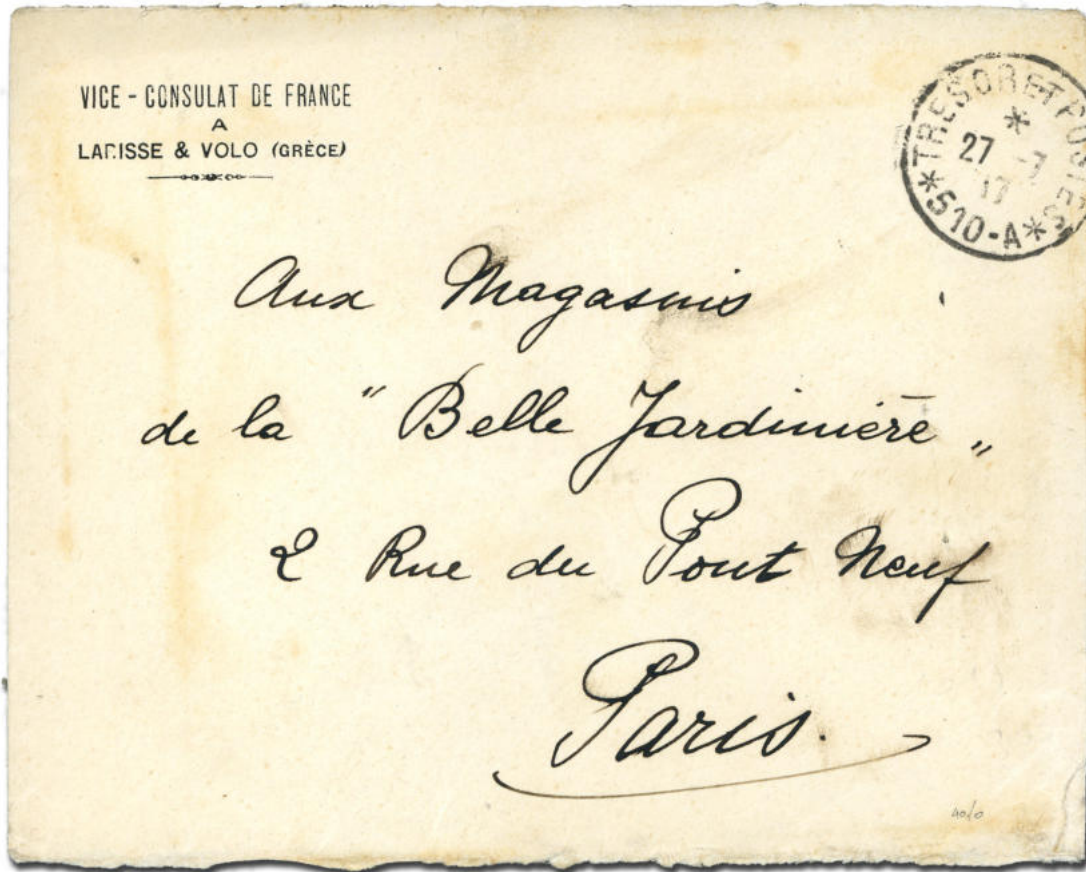 VICE - CONSULAT DE FRANCE
A
LARISSE & VOLO (GRÈCE)
TRESOR ET POSTES
*
27 -7
17
*510-A*
Aux Magasins
de la "Belle Jardinière"
2 Rue du Pont Neuf
Paris.